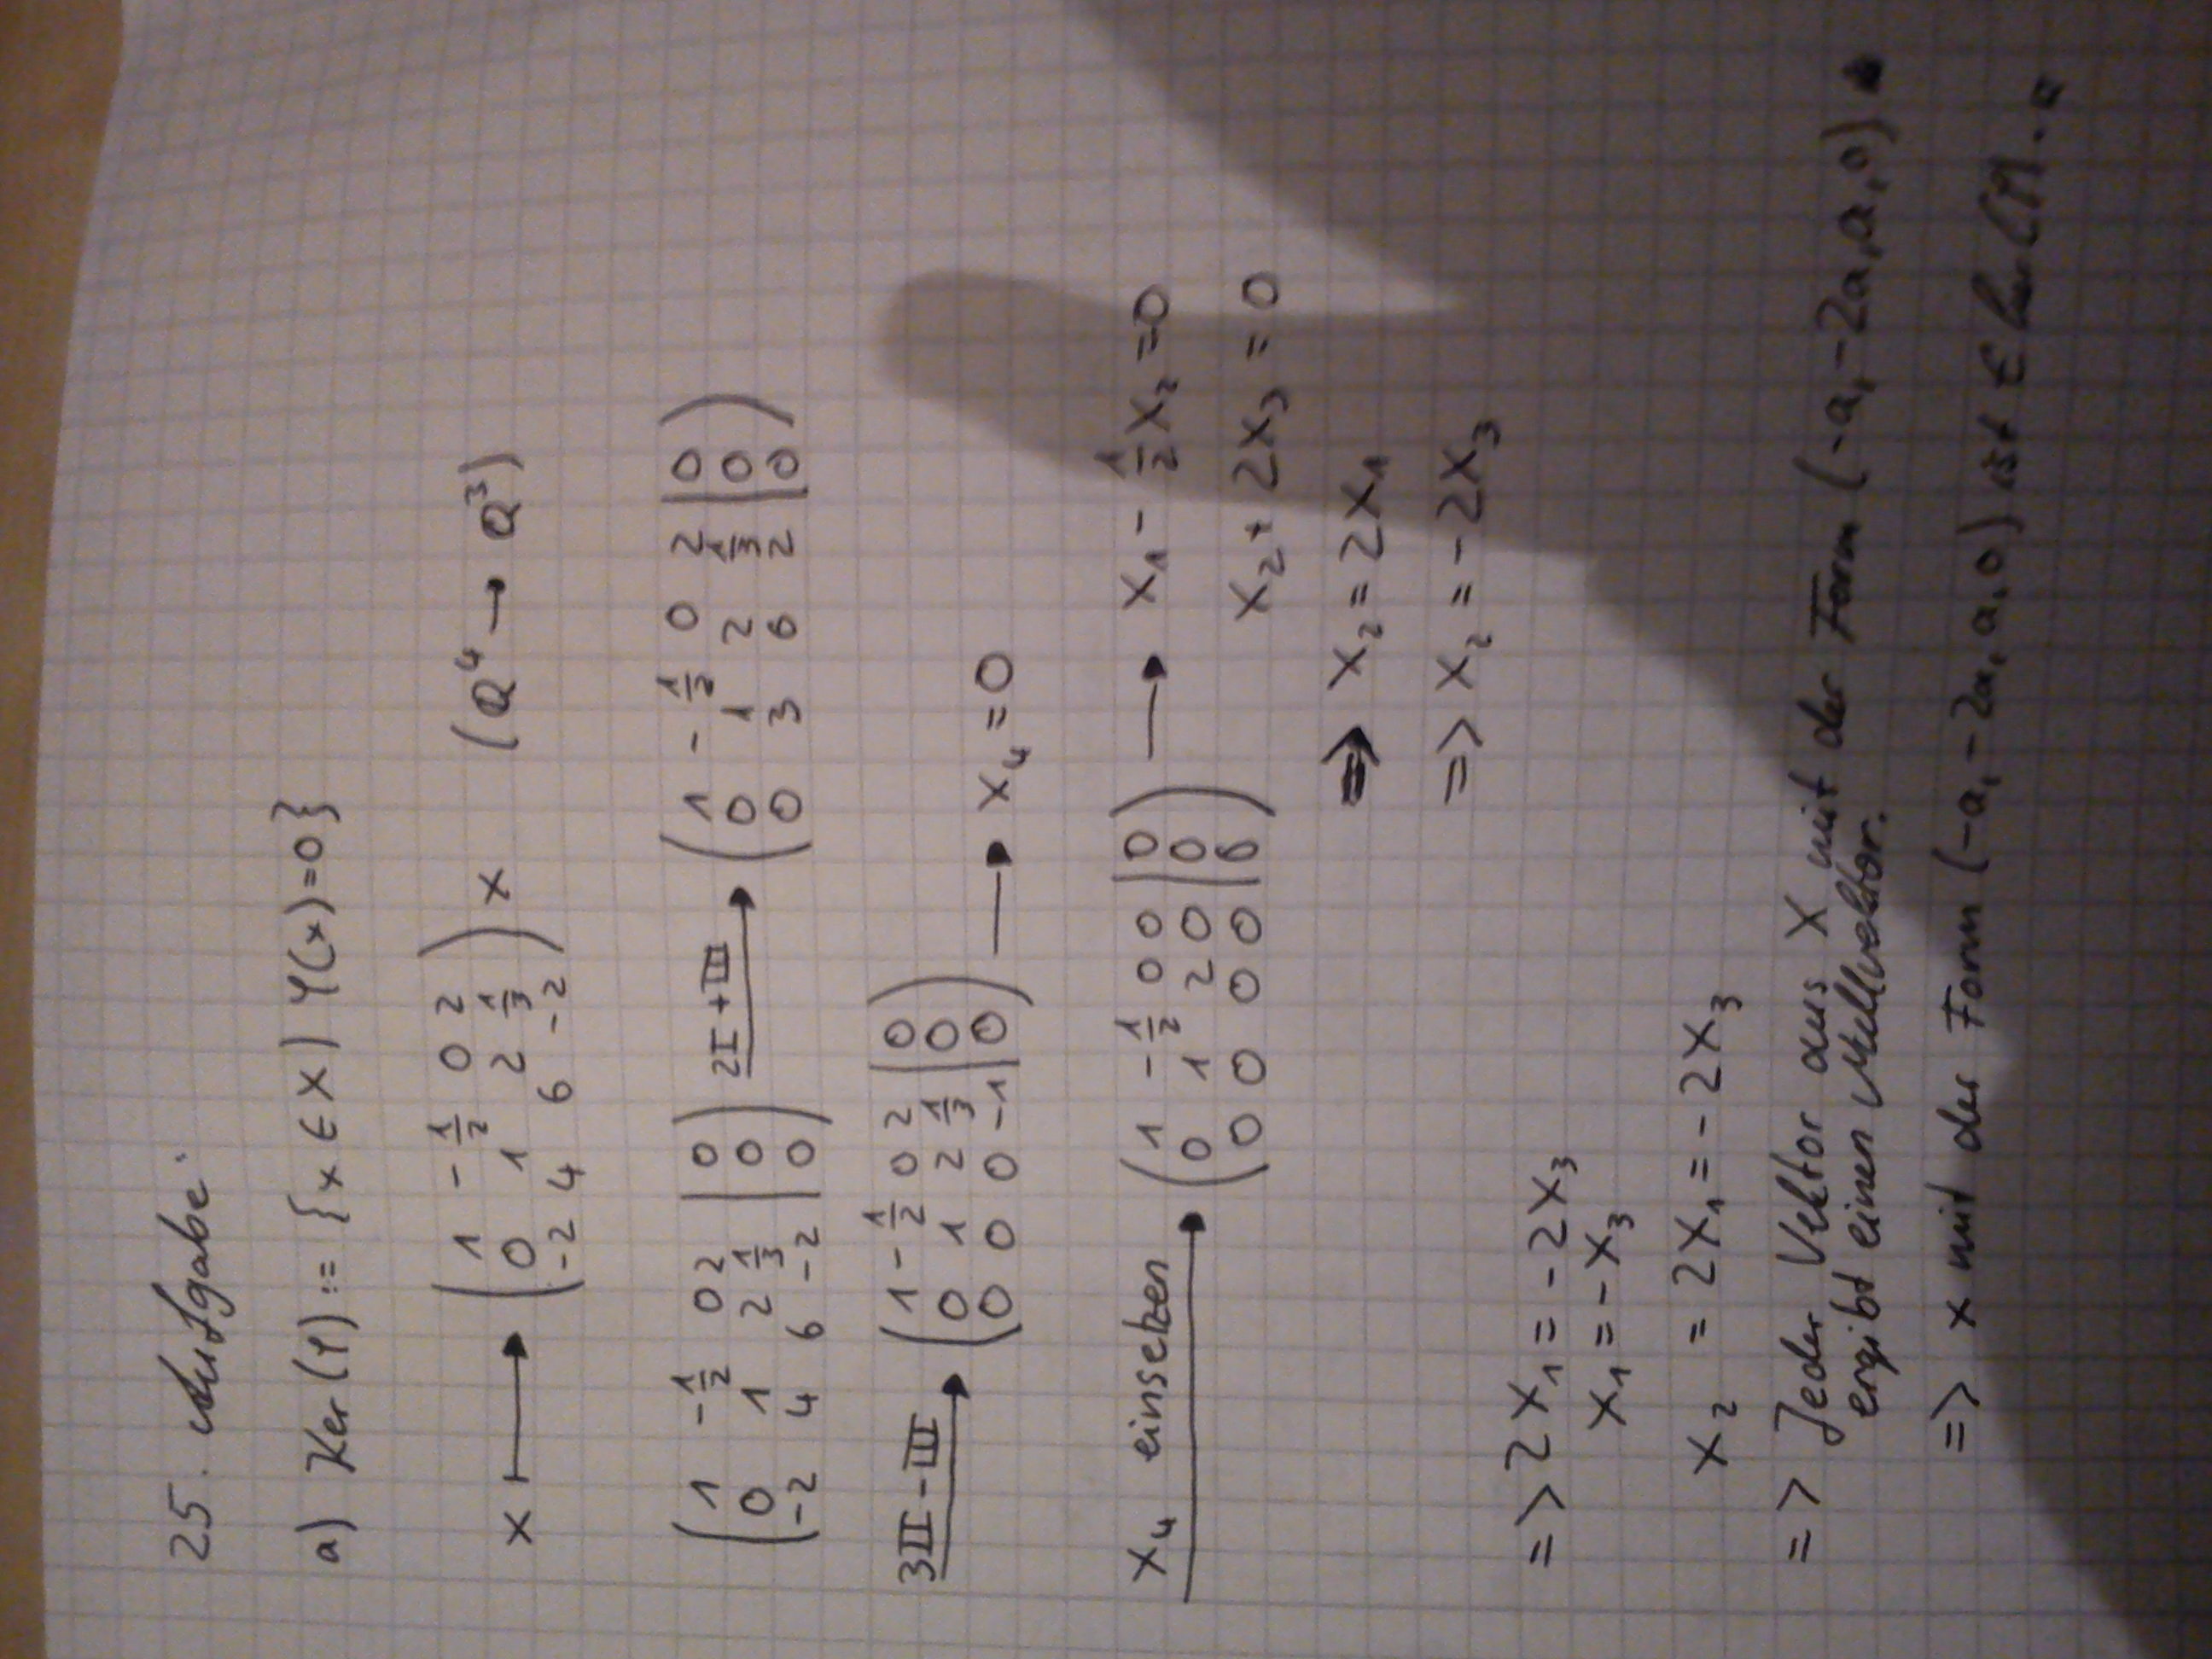 25. Aufgabe:
a) Ker(φ) := {x ∈ X | φ(x)=0}
x ⟼ (1 -1/2 0 2; 0 1 2 1/3; -2 4 6 -2) x (Q⁴ → Q³)
(1 -1/2 0 2 | 0; 0 1 2 1/3 | 0; -2 4 6 -2 | 0) 2I+III → (1 -1/2 0 2 | 0; 0 1 2 1/3 | 0; 0 3 6 2 | 0)
3II-III → (1 -1/2 0 2 | 0; 0 1 2 1/3 | 0; 0 0 0 -1 | 0) → x₄=0
x₄ einsetzen → (1 -1/2 0 0 | 0; 0 1 2 0 | 0; 0 0 0 0 | 0) → x₁ - 1/2 x₂ =0
x₂ + 2x₃ = 0
⇒ x₂ = 2x₁
=> x₂ = -2x₃
=> 2x₁ = -2x₃
x₁ = -x₃
x₂ = 2x₁ = -2x₃
=> Jeder Vektor aus X mit der Form (-a, -2a, a, 0)
ergibt einen Nullvektor.
=> x mit der Form (-a, -2a, a, 0) ist ∈